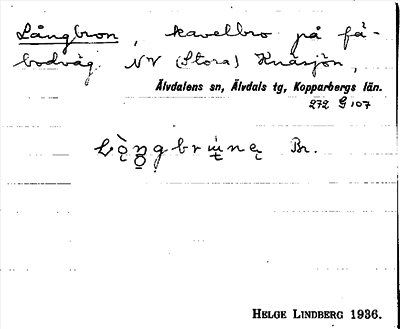 Långbron, kavelbro på fä-
bodväg. NV (Stora) Knäsjön,
Älvdalens sn, Älvdals tg, Kopparbergs län.
272 G 107
Br.
HELGE LINDBERG 1936.